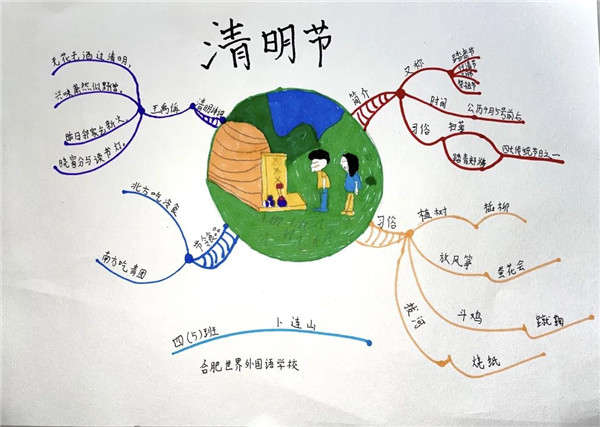 清明节
清明诗词
王禹偁
无花无酒过清明,
兴味萧然似野僧。
昨日邻家乞新火,
晓窗分与读书灯。
简介
又称
踏青节
祭祖节
时间
公历4月5号前后
习俗
扫墓
踏青郊游
四大传统节日之一
北方吃冷食
南方吃青团
习俗
植树
插柳
放风筝
蚕花会
斗鸡
蹴鞠
拔河
烧纸
四(5)班
卜连山
合肥世界外国语学校